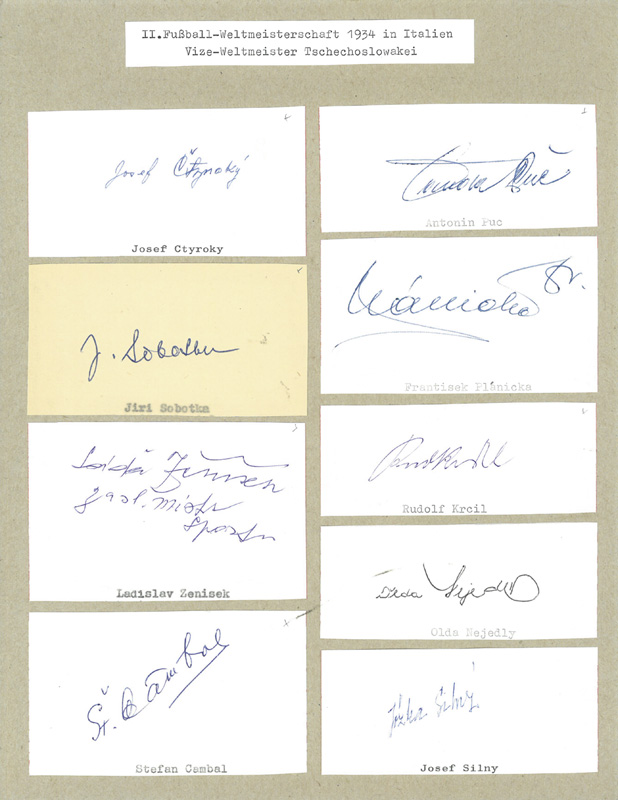 II.Fußball-Weltmeisterschaft 1934 in Italien
Vize-Weltmeister Tschechoslowakei
Josef Čtyroký
Josef Ctyroky
J. Sobotka
Jiri Sobotka
Ženíšek
zasl. mistr
sportu
Ladislav Zenisek
Št. Čambal
Stefan Cambal
Antonin Puč
Antonin Puc
Plánička Fr.
Frantisek Plánicka
Rud Krčil
Rudolf Krcil
Olda Nejedlý
Olda Nejedly
Jóžka Silný
Josef Silny